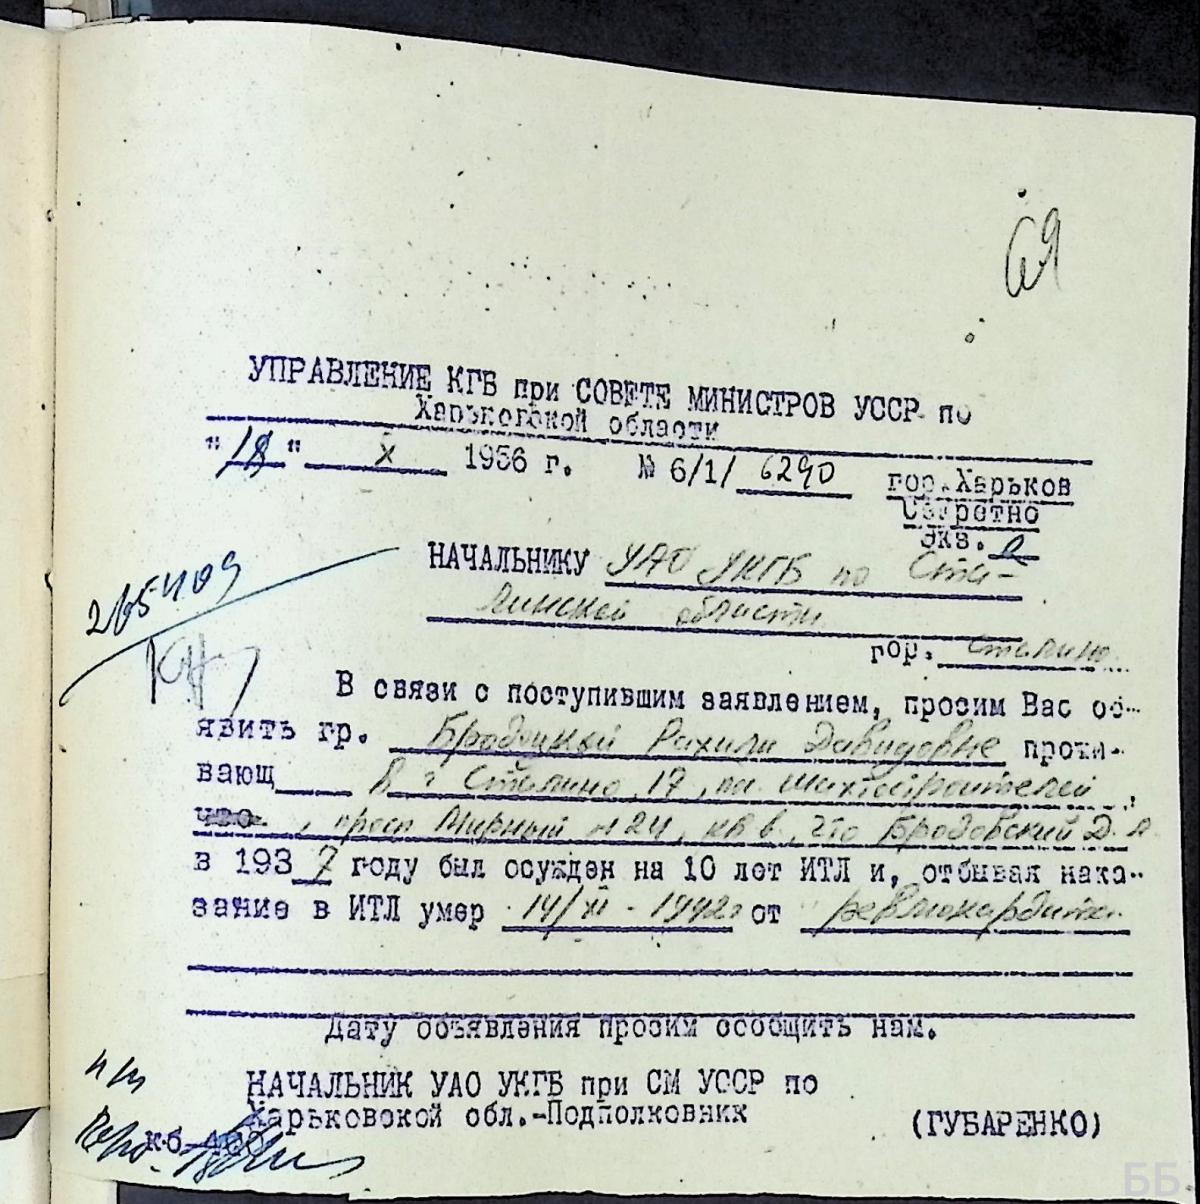 69
УПРАВЛЕНИЕ КГБ при СОВЕТЕ МИНИСТРОВ УССР по
Харьковской области
"18" X 1956 г. № 6/1/ 6290
гор. Харьков
Секретно
Экз. 2
НАЧАЛЬНИКУ УАО УКГБ по Ста-
линской области
гор. Сталино
В связи с поступившим заявлением, просим Вас об-
явить гр. Рахили Давидовне прожи-
вающ в г Сталино, 17, пл. шахтостроителей,
, просп Мирный № 24, кв 6, что Бродовский Д. Л.
в 1937 году был осужден на 10 лет ИТЛ и, отбывая нака-
зание в ИТЛ умер 14/XI - 1942 г от ревмокардита
Дату объявления просим сообщить нам.
пт
НАЧАЛЬНИК УАО УКГБ при СМ УССР по
Харьковской обл.-Подполковник
(ГУБАРЕНКО)
ББ